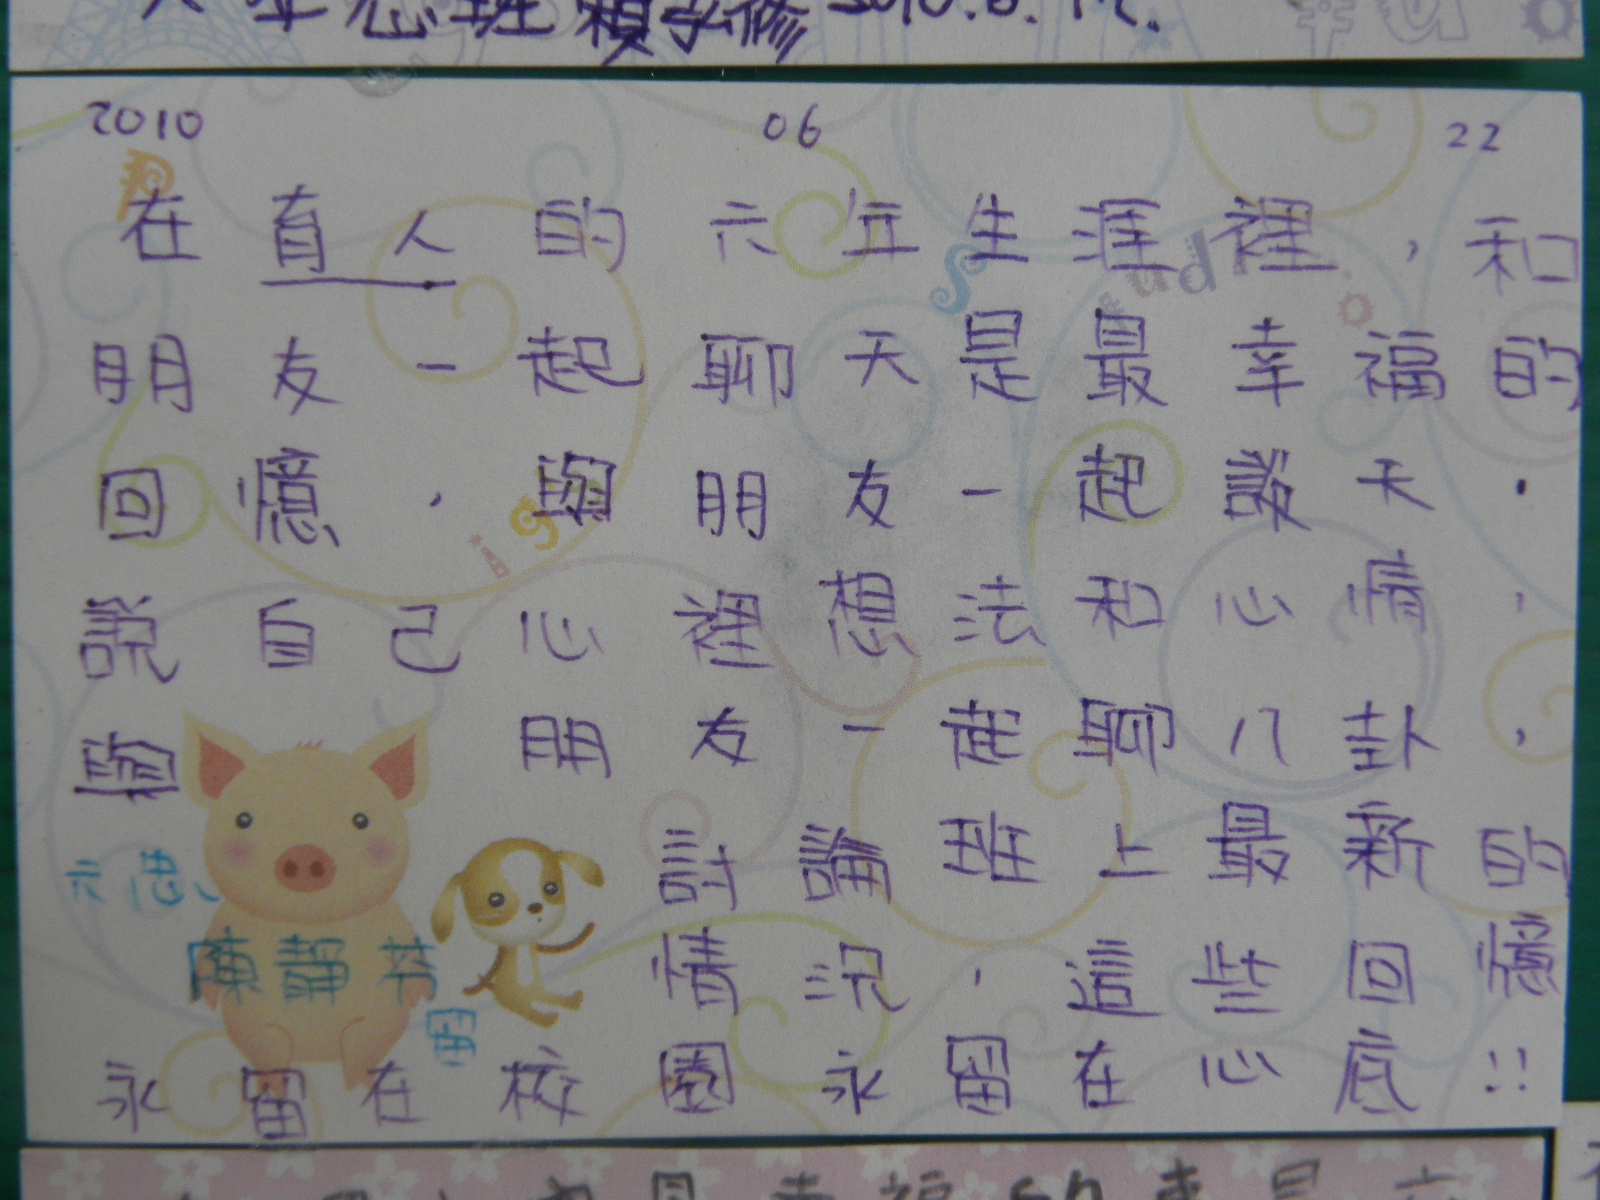 2010 06 22
在直人的六年生涯裡，和
朋友一起聊天是最幸福的
回憶，與朋友一起談天，
說自己心裡想法和心情，
與朋友一起聊八卦，
討論班上最新的
情況，這些回憶
永留在校園永留在心底!!
六思
陳靜芬
留